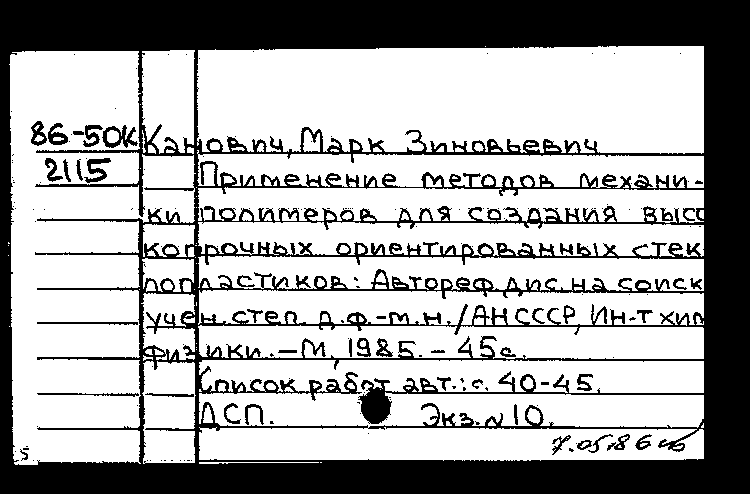 86-50К Канович, Марк Зиновьевич
2115 Применение методов механи-
ки полимеров для создания высо
копрочных ориентированных стек
лопластиков: Автореф. дис. на соиск
учен. степ. д.ф.-м.н./АН СССР, Ин-т хим
физики. - М., 1985. - 45с.
Список работ авт.: с. 40-45.
ДСП. Экз. № 10.
7.05.86
5